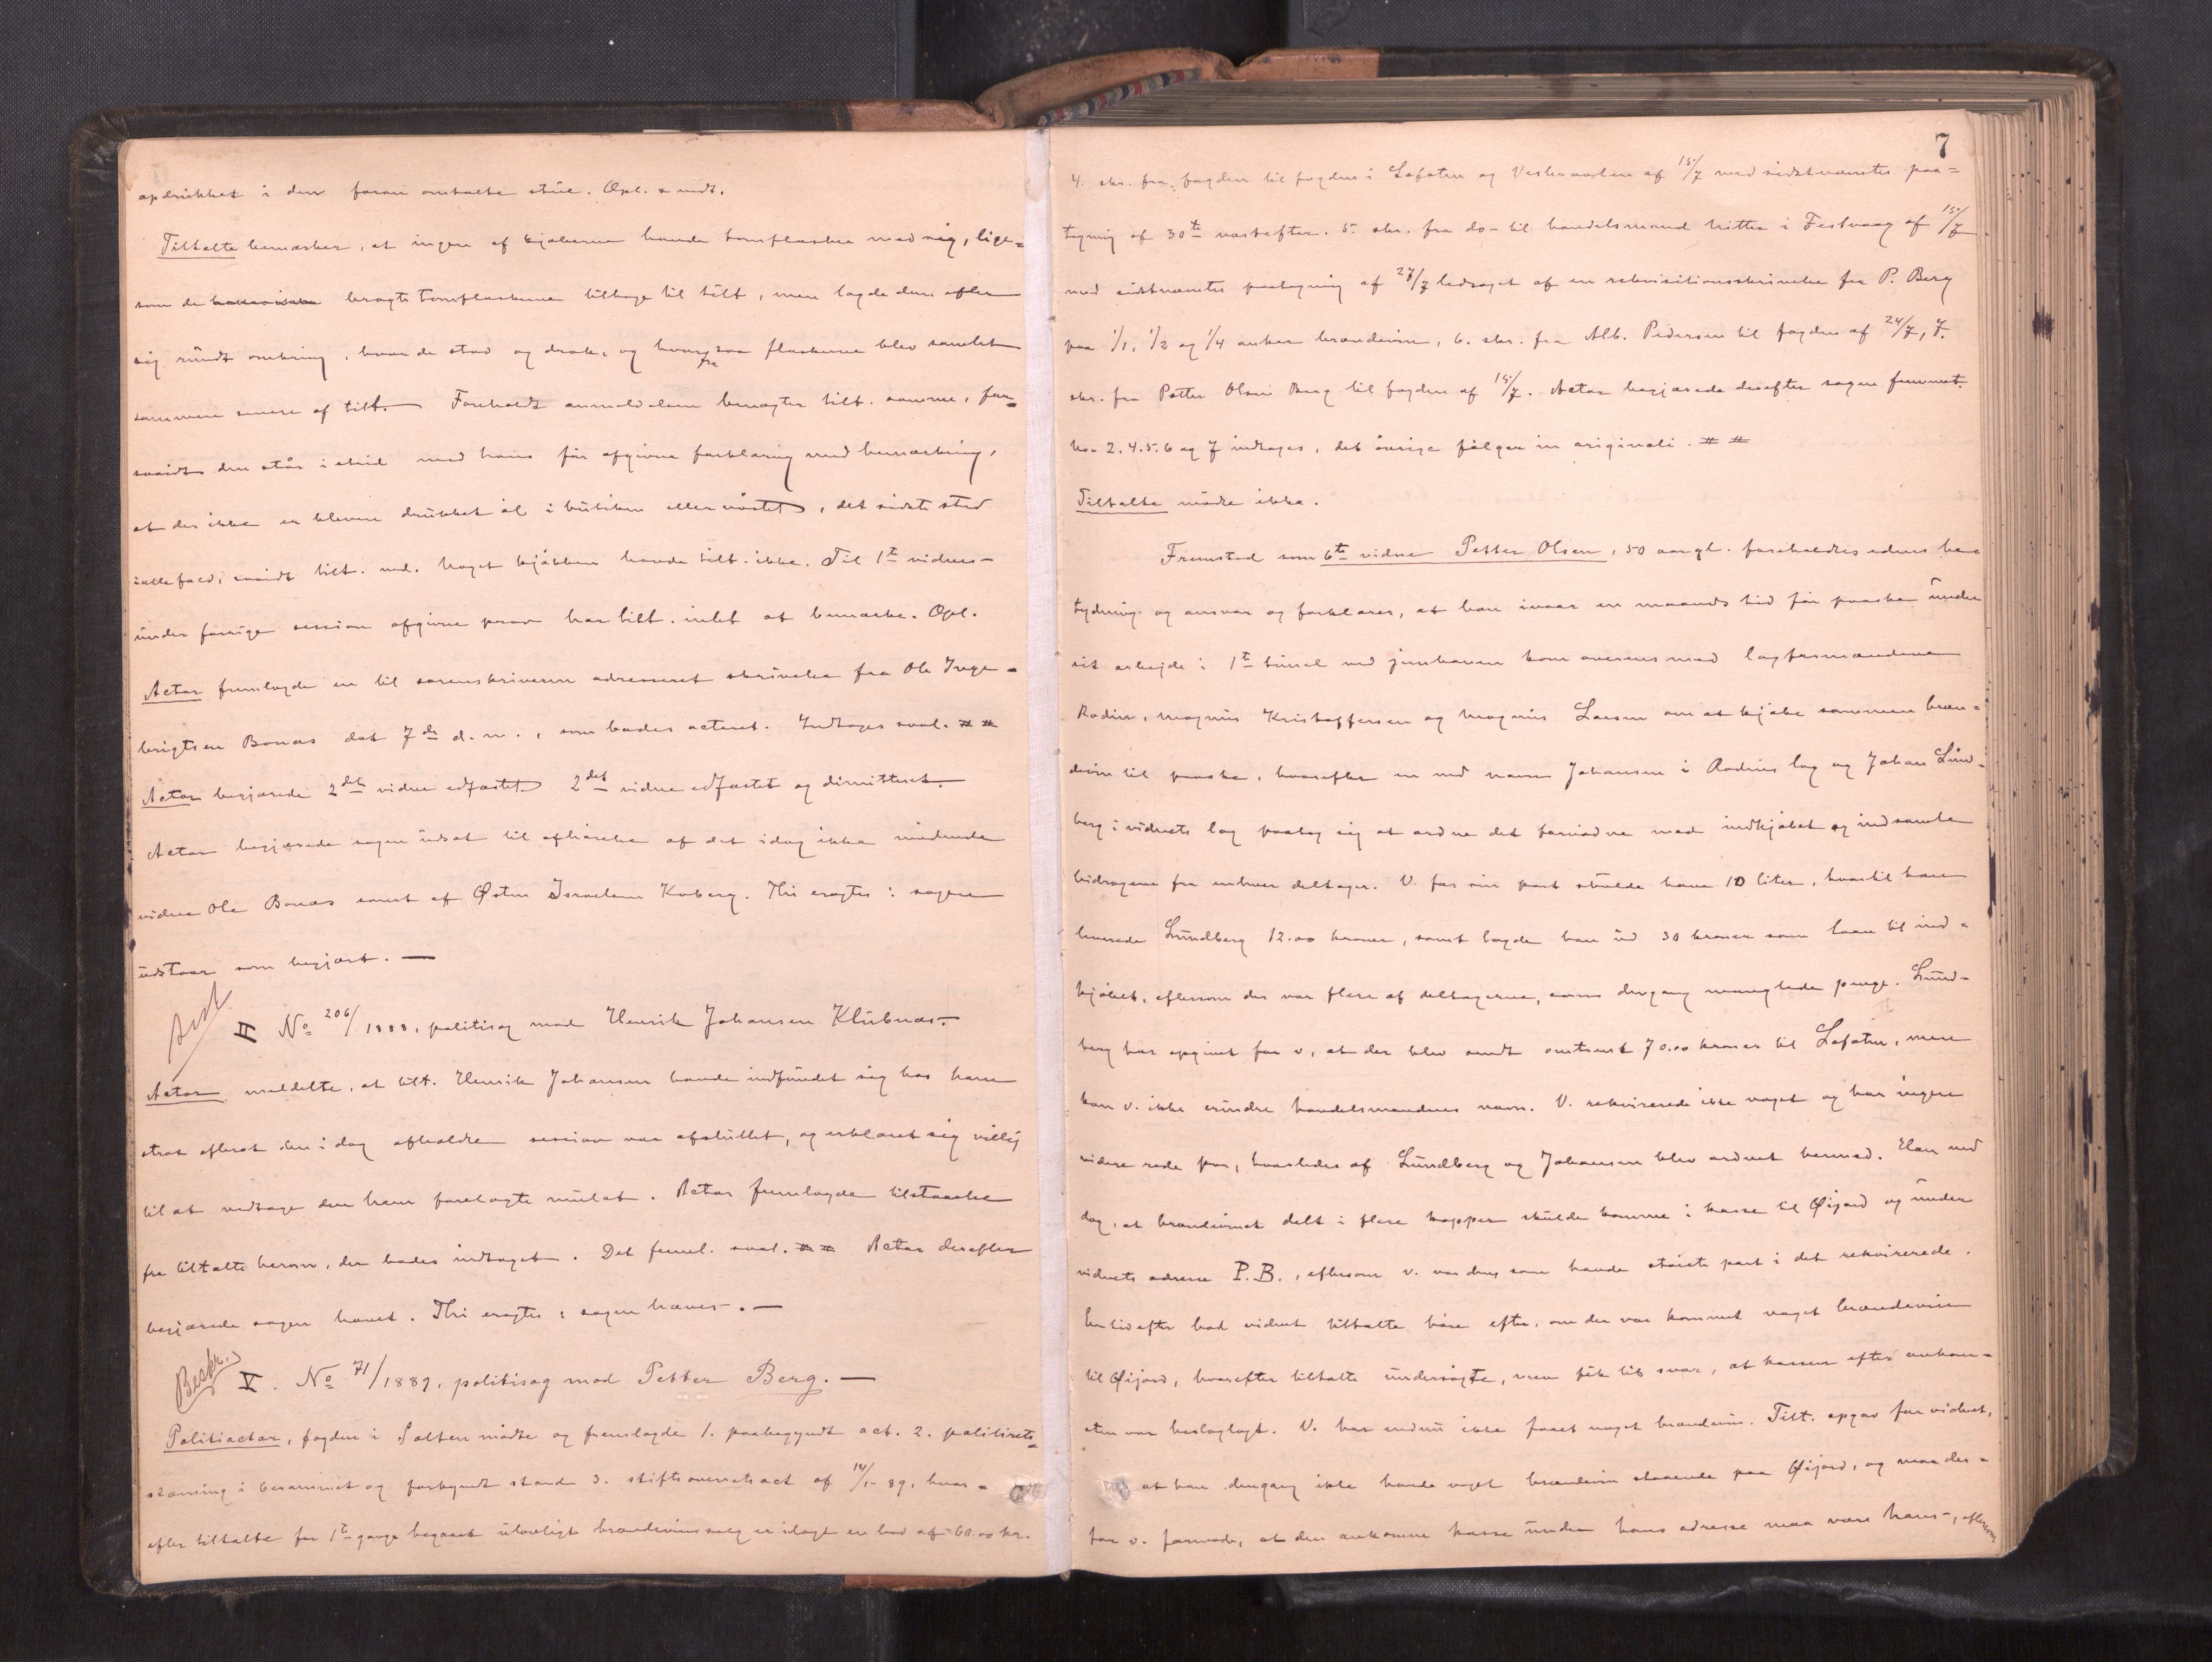 opdrukket i den foran omtalte stue. Opl. & vedt.
Tiltalte bemærker, at ingen af kjøberne havde tomflasker med sig, lige-
som de bragte tomflaskerne tilbage til tilt, men lagde dem efter
sig rundt omkring, hvor de stod og drak, og hvorfra saa flaskerne blev samlet
sammen senere af tilt. Foreholdt anmeldelsen benægter tilt. samme, for-
saavidt den står i strid med hans før afgivne forklaring med bemærkning,
at der ikke er blevene drukket øl i butiken eller nöstet, det sidste sted
iallefald, saavidt tilt. ved. Noget kjøkken havde tilt. ikke. Til 1te vidnes
under forrige session afgivne prov har tilt. intet at bemærke. Opl.
Actor fremlagde en til sorenskriveren adresseret skrivelse fra Ole Inge-
brigtsen Bonæs dat 7de d. m., som bades acteret. Indtages saal. ##
Actor begjærede 2det vidne edfæstet. 2det vidne edfæstet og dimitteret.
Actor begjærede sagen udsat til afhörelse af det idag ikke mödende
vidne Ole Bonæs samt af Østen Israelsen Koberg. Thi eragtes: sagen
udstaar som begjært. —
II No 206/1888, politisag mod Henrik Johansen Klubnæs.
Actor meddelte, at tilt. Henrik Johansen havde indfundet sig hos ham
strax efterat den i dag afholdte session var afsluttet, og erklæret sig villig
til at vedtage den ham forelagte mulct. Actor fremlagde tilstaaelse
fra tiltalte herom, der bades indtaget. Det freml. saal. ## Actor derefter
begjærede sagen hævet. Thi eragtes: sagen hæves. —
Beskr.
V. No 71/1889, politisag mod Petter Berg. —
Politiactor, fogden i Salten mödte og fremlagde 1. paabegyndt act. 2. politirets-
stævning i berammet og forkyndt stand 3. stiftsoverretsact af 14/1- 89, hvor-
efter tiltalte for 1te gangs begaaet ulovligt brændevinssalg er ilagt en bod af 60.00 kr.
7
4. skr. fra fogden til fogden i Lofoten og Vesteraalen af 15/7 med sidstnævntes paa-
tegning af 30te næstefter. 5. skr. fra do- til handelsmand Ritter i Festvaag af 15/7
med sidstnævntes paategning af 27/7 ledsaget af en rekvisitionsskrivelse fra P. Berg
paa 1/1, 1/2 og 1/4 anker brændevin, 6. skr. fra Alb. Pedersen til fogden af 24/7, 7.
skr. fra Petter Olsen Berg til fogden af 15/7. Actor begjærede derefter sagen fremmet.
No. 2. 4. 5. 6 og 7 indtages, det övrige fölger in originali. ##
Tiltalte mödte ikke.
Fremstod som 6te vidne Petter Olsen, 50 aar gl. foreholdtes edens be-
tydning og ansvar og forklarer, at han ivaar en maaneds tid før paaske under
sit arbejde i 1te tunnel ved jernbanen kom overens med lagformændene
Rodin, Magnus Kristoffersen og Magnus Larsen om at kjøbe sammen bræn-
devin til paaske, hvorefter en ved navn Johansen i Rodins lag og Johan Lund-
berg i vidnets lag paatog sig at ordne det fornødne med indkjøbet og indsamle
bidragene fra enhver deltager. V. for sin part skulde have 10 liter, hvortil han
leverede Lundberg 12.00 kroner, samt lagde han ud 30 kroner som laan til ind-
kjøbet, eftersom der var flere af deltagerne, som dengang manglede penge. Lund-
berg har opgivet for v, at der blev sendt omtrent 70.00 kroner til Lofoten, men
kan v. ikke erindre handelsmandens navn. V. rekvirerede ikke noget og har ingen
videre rede paa, hvorledes af Lundberg og Johansen blev ordnet hermed. Han ved
dog, at brændevinet delt i flere kagger skulde komme i kasse til Øijord og under
vidnets adresse P. B., eftersom v. var den, som havde største part i det rekvirerede.
En tid efter bad vidnet tiltalte höre efter, om der var kommet noget brændevin
til Øijord, hvorefter tiltalte undersøgte, men fik til svar, at kassen efter ankom-
sten var beslaglagt. V. har endnu ikke faaet noget brændevin. Tilt. opgav for vidnet,
at han dengang ikke havde noget brændevin staaende paa Øijord, og maa der-
for v. formode, at den ankomne kasse under hans adresse maa være hans, eftersom